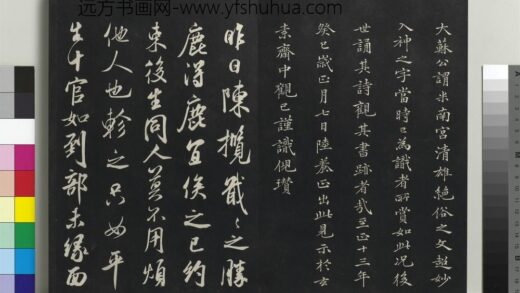 远方书画网-www.yfshuhua.com
大蘇公謂米南宮清雄絕俗之文超妙
入神之字當時已為識者所賞如此况後
世誦其詩觀其書跡者哉至正十三年
癸巳歲正月七日陸養正出此見示於玄
素齋中觀已謹識倪瓚
昨日陳攬戢戢之勝
鹿得鹿宜俟之已約
束後生同人莫不用煩
他人也軫之只如平
生十官如到部未緣面